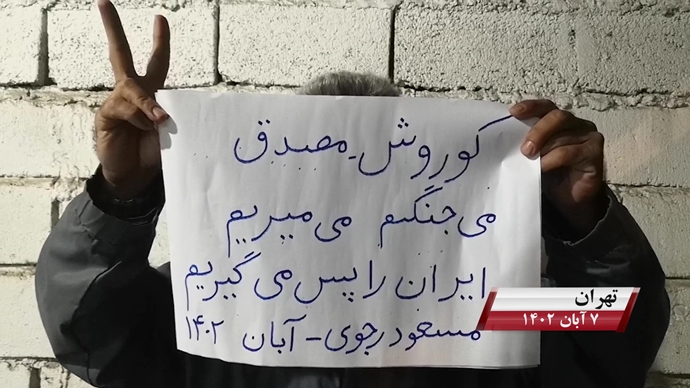 کوروش-مصدق
می‌جنگیم می‌میریم
ایران را پس می‌گیریم
مسعود رجوی - آبان ۱۴۰۲
تهران
۷ آبان ۱۴۰۲